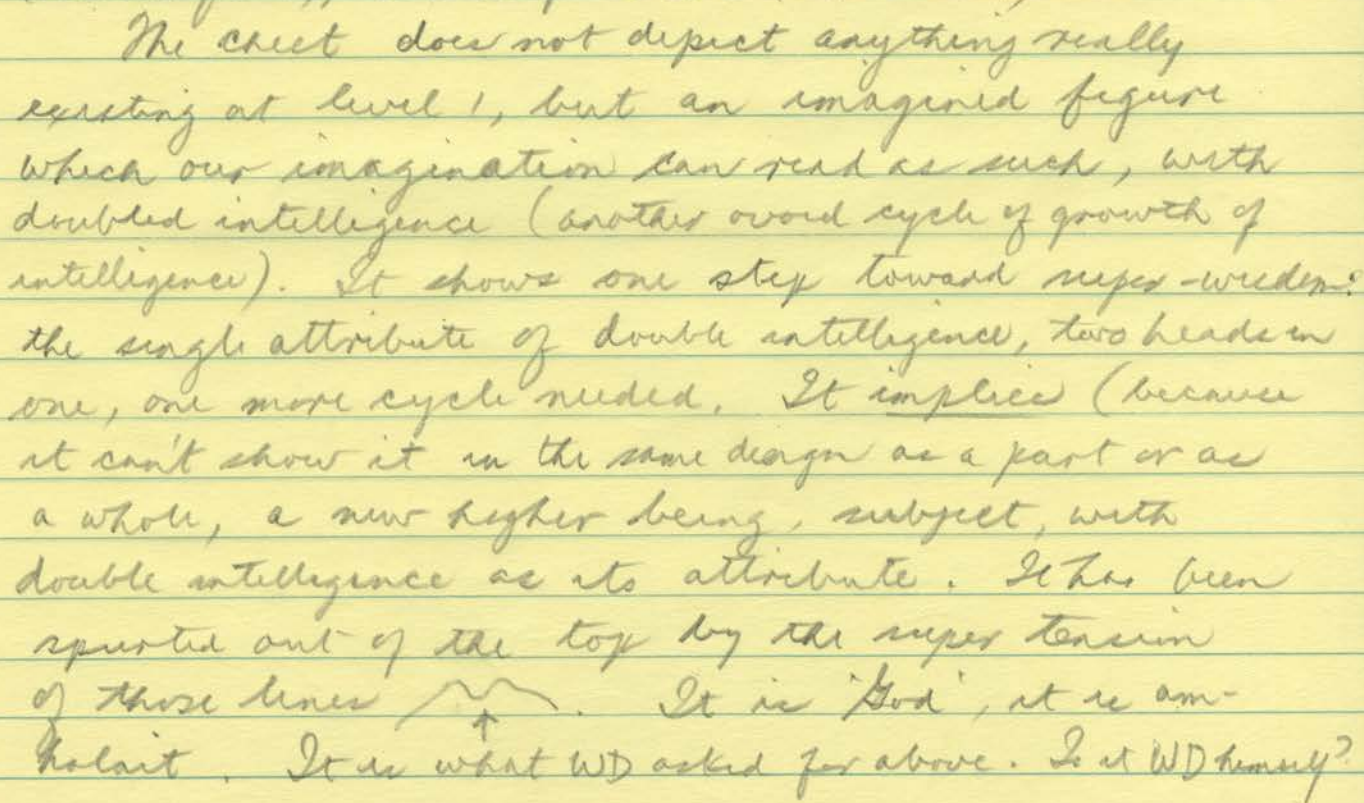 The chest does not depict anything really
existing at level 1, but an imagined figure
which our imagination can read as such, with
doubled intelligence (another ovoid cycle of growth of
intelligence). It shows one step toward super-wisdom:
the single attribute of double intelligence, two heads in
one, one more cycle needed. It implies (because
it can't show it in the same design as a part or as
a whole, a new higher being, subject, with
double intelligence as its attribute. It has been
spurted out of the top by the super tension
of those lines . It is 'God', it is am-
halait. It is what WD asked for above. Is it WD himself?